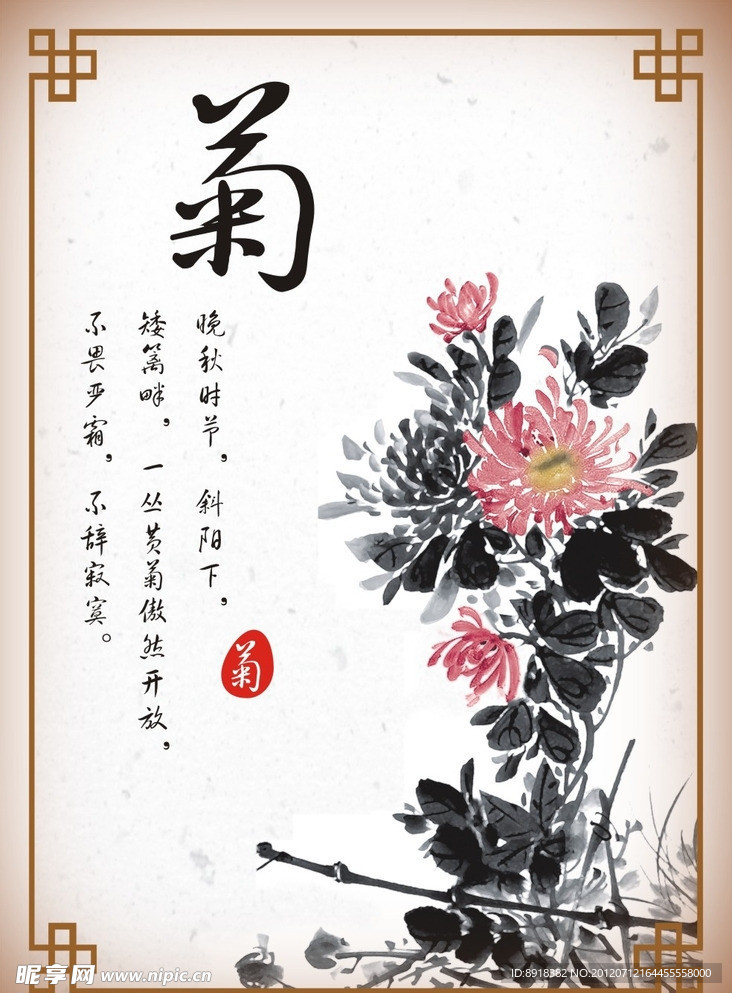 菊
晚秋时节，斜阳下，
矮篱畔，一丛黄菊傲然开放，
不畏严霜，不辞寂寞。
菊
昵享网 www.nipic.cn
ID:8918382 NO:20120712164455558000